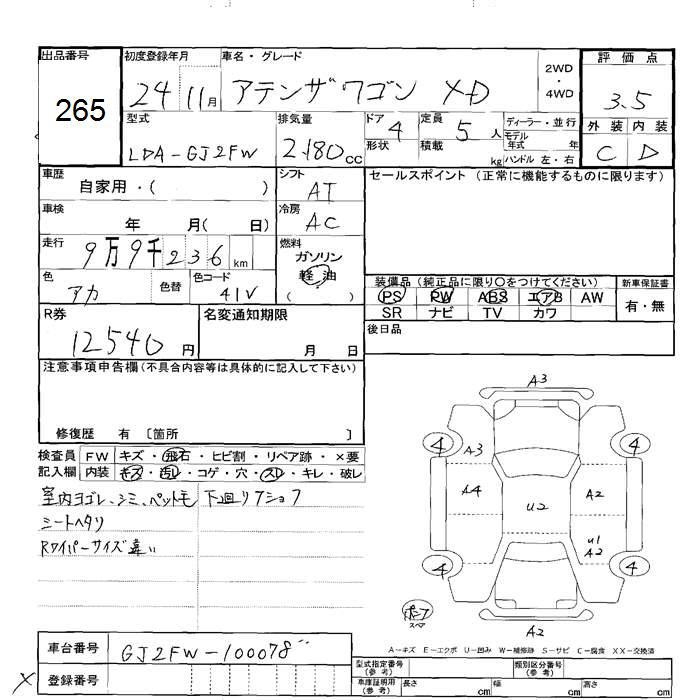 出品番号
265
初度登録年月
24 11月
車名・グレード
アテンザワゴン XD
2WD・4WD
評価点
3.5
外装 内装
C D
型式
LDA-GJ2FW
排気量
2.180cc
ドア形状
4
定員 5人
積載 kg
ディーラー・並行
モデル年式 年
ハンドル 左・右
車歴
自家用・( )
シフト
AT
車検
年 月( 日)
冷房
AC
走行
9万9千236km
燃料
ガソリン
軽油
( )
色
アカ
色替
色コード
41V
R券
12540円
名変通知期限
月 日
セールスポイント(正常に機能するものに限ります)
装備品(純正品に限り○をつけてください)
PS PW ABS エアB AW
SR ナビ TV カワ
新車保証書
有・無
後日品
注意事項申告欄(不具合内容等は具体的に記入して下さい)
修復歴 有 〔箇所 〕
検査員記入欄
FW キズ・飛石・ヒビ割・リペア跡・×要
内装 キズ・汚レ・コゲ・穴・スレ・キレ・破レ
室内ヨゴレ、シミ、ペットモ
下廻リアショフ
シートヘタリ
Rワイパーサイズ違い
A3
4
A3
4
A4
U2
A2
U1
A2
4
4
ポンプ
スペア
A2
A-キズ E-エクボ U-凹み W-補修跡 S-サビ C-腐食 XX-交換済
車台番号
GJ2FW-100078
登録番号
×
型式指定番号(参考)
類別区分番号(参考)
車庫証明用(参考)
長さ cm 幅 cm 高さ cm